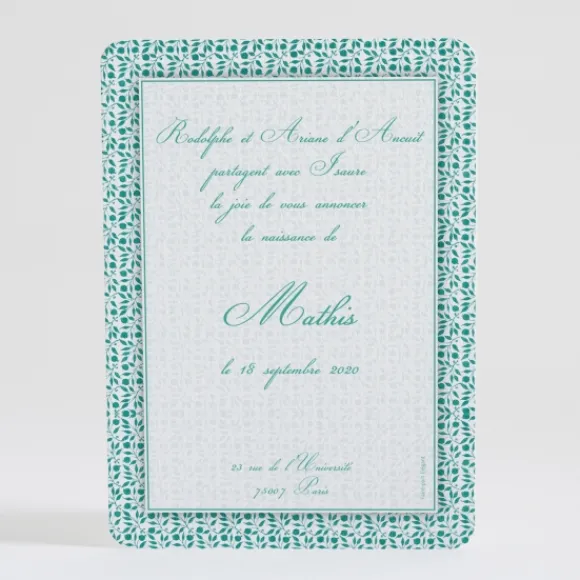 Rodolphe et Ariane d'Ancuit
partagent avec Isaure
la joie de vous annoncer
la naissance de
Mathis
le 18 septembre 2020
23 rue de l'Université
75007 Paris